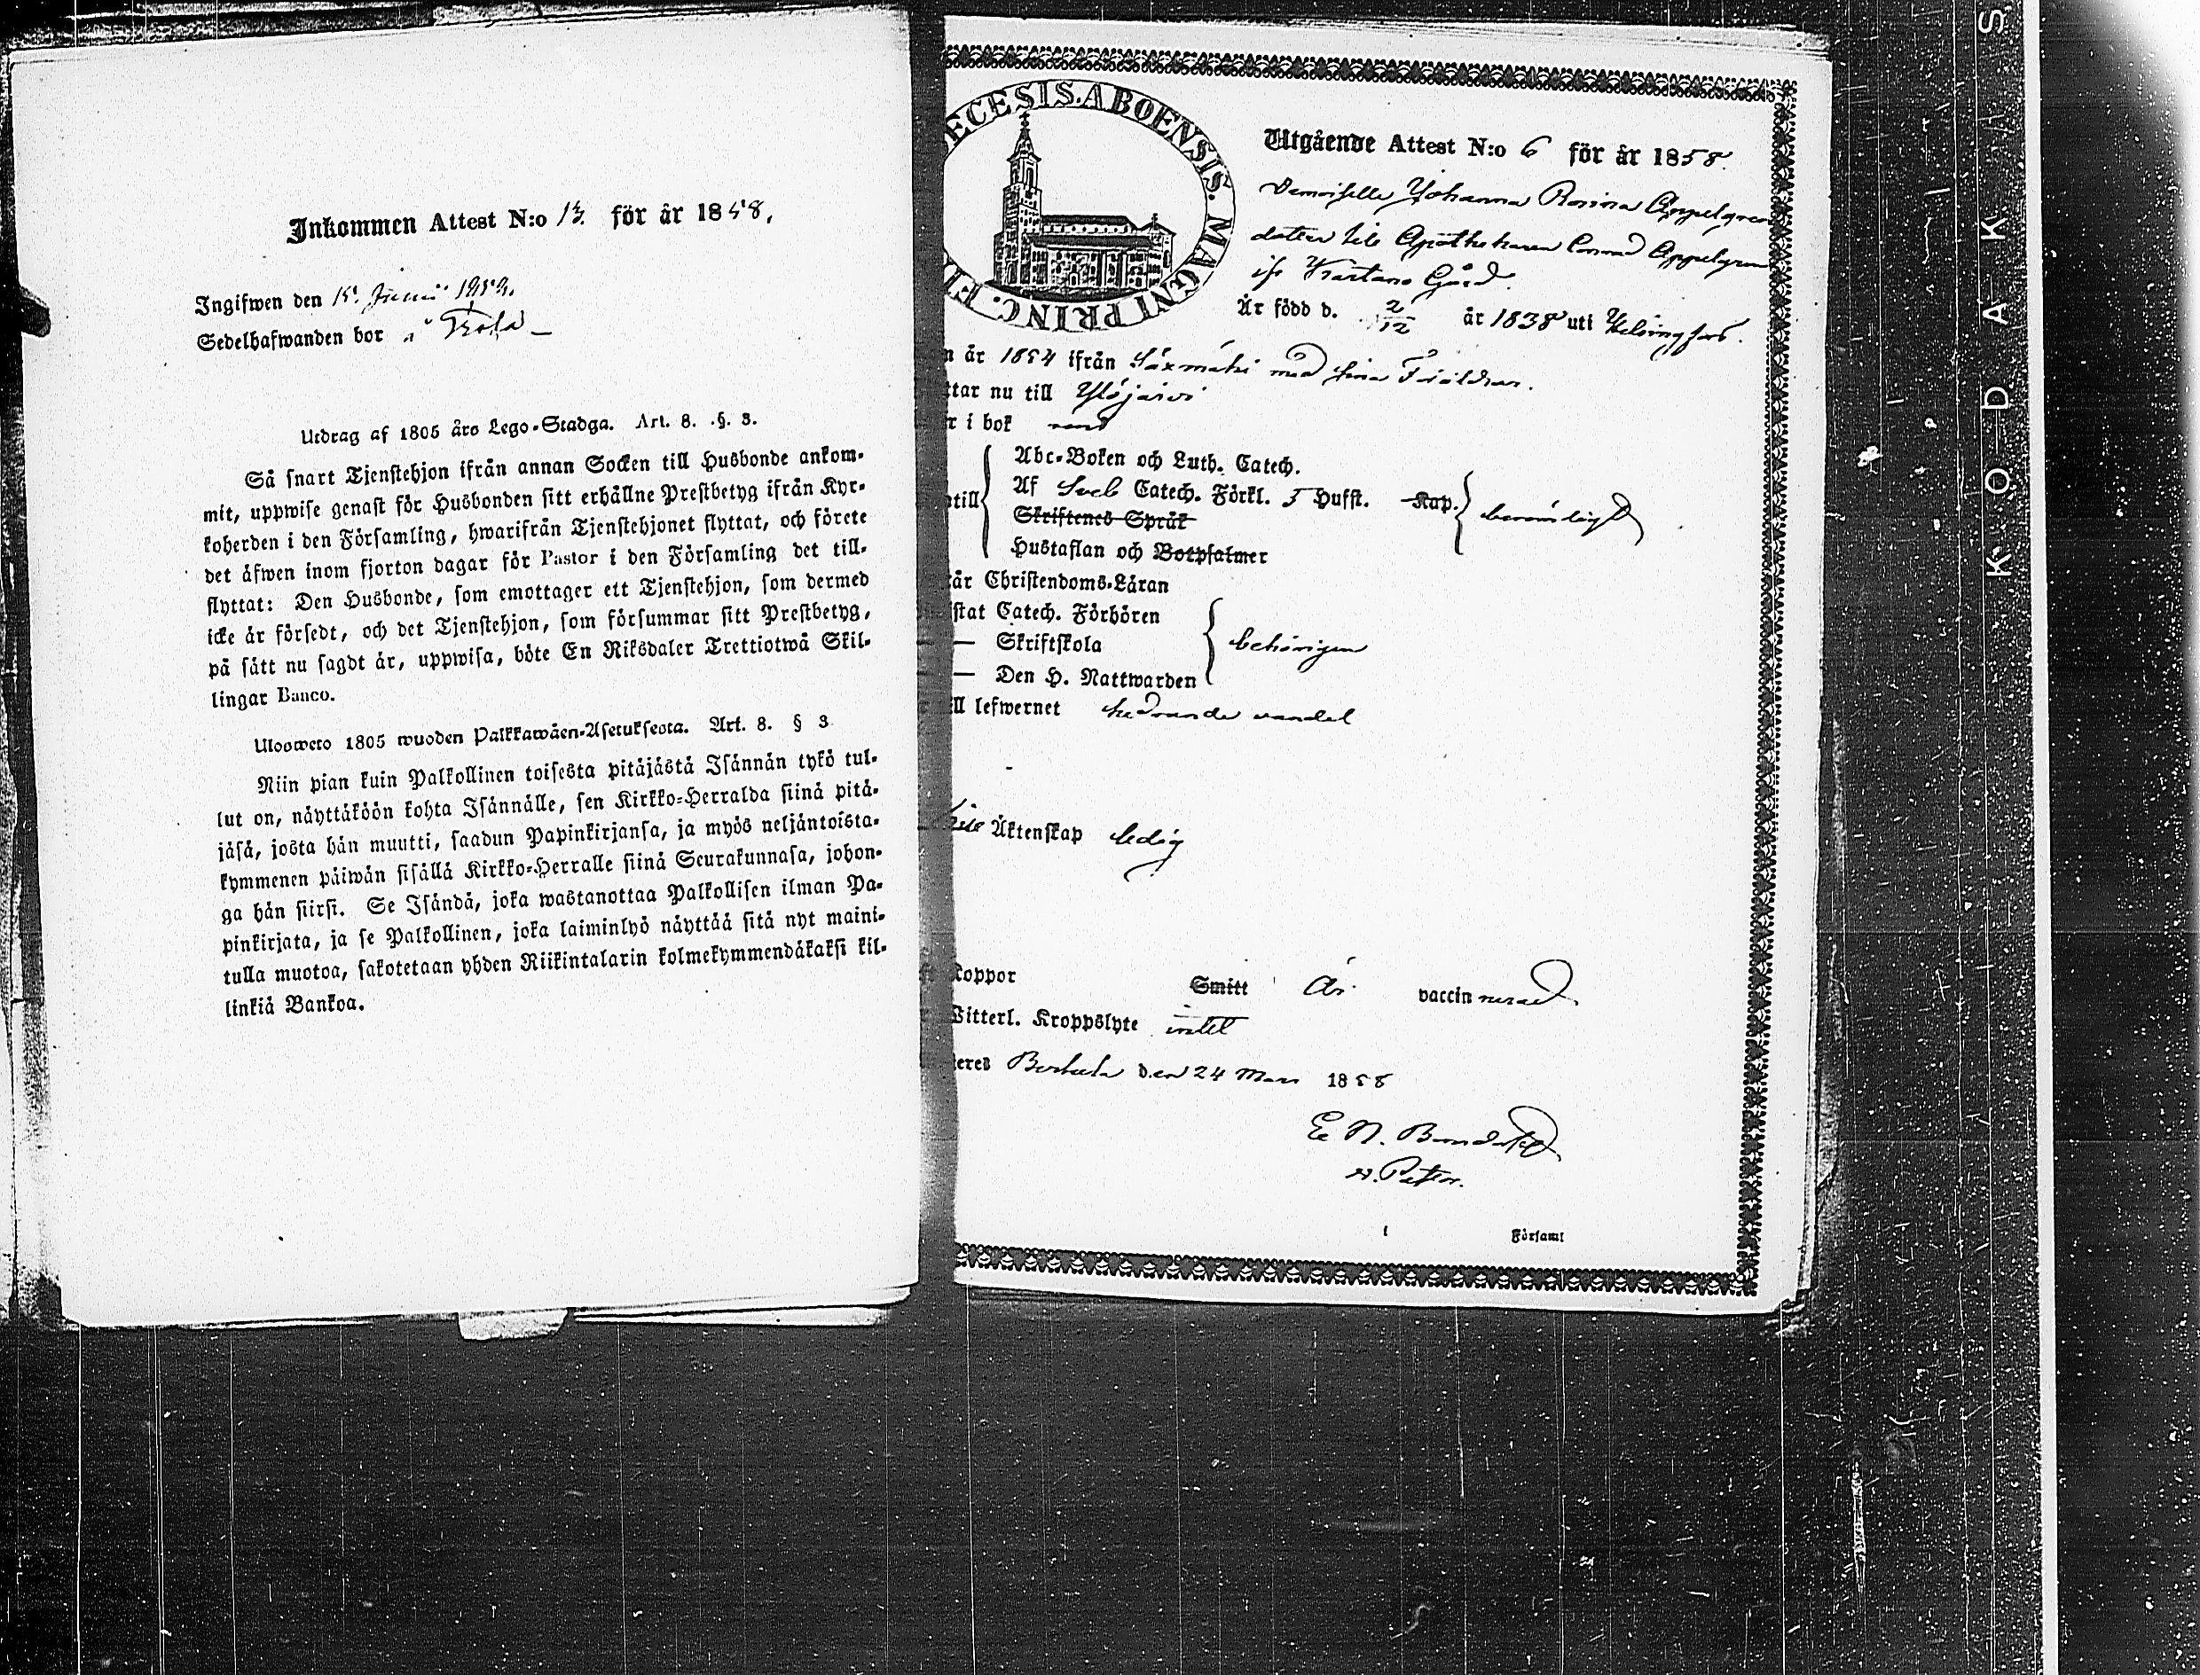 Inkommen Attest N:o 13. för år 1858.
Ingifwen den 15. Junii 1858.
Sedelhafwanden bor å Trola
Utdrag af 1805 års Lego-Stadga. Art. 8. §. 3.
Så snart Tjenstehjon ifrån annan Socken till Husbonde ankom-
mit, uppwise genast för Husbonden sitt erhållne Prestbetyg ifrån Kyr-
koherden i den Församling, hwarifrån Tjenstehjonet flyttat, och förete
det äfwen inom fjorton dagar för Pastor i den Församling det till-
flyttat: Den Husbonde, som emottager ett Tjenstehjon, som dermed
icke är försedt, och det Tjenstehjon, som försummar sitt Prestbetyg,
på sätt nu sagdt är, uppwisa, böte En Riksdaler Trettiotwå Skil-
lingar Banco.
Ulosweto 1805 wuoden Palkkawäen-Asetuksesta. Art. 8. § 3
Niin pian kuin Palkollinen toisesta pitäjästä Isännän tykö tul-
lut on, näyttäköön kohta Isännälle, sen Kirkko-Herralda siinä pitä-
jäsä, josta hän muutti, saadun Papinkirjansa, ja myös neljäntoista-
kymmenen päiwän sisällä Kirkko-Herralle siinä Seurakunnasa, johon-
ga hän siirsi. Se Isändä, joka wastanottaa Palkollisen ilman Pa-
pinkirjata, ja se Palkollinen, joka laiminlyö näyttää sitä nyt maini-
tulla muotoa, sakotetaan yhden Riikintalarin kolmekymmendäkaksi kil-
linkiä Bankoa.
ECESIS. ABOENSIS. MAGNI PRINC. FI
Utgående Attest N:o 6 för år 1858.
Demoiselle Johanna Rosina Appelgren
dotter till Apothekaren Conrad Appelgren
ifr Kartano Gård.
Är född d. 2/12 år 1838 uti Helsingfors.
n år 1854 ifrån Säxmäki med sina Föräldrar.
ttar nu till Ylöjärvi
r i bok rent
Abc-Boken och Luth. Catech.
Af Sveb Catech. Förkl. 5 Hufst. Kap.
till
Skriftenes Språk
berömligt
Hustaflan och Botpsalmer
tår Christendoms-Läran
stat Catech. Förhören
— Skriftskola
behörigen
— Den H. Nattwarden
ll lefwernet hedrande vandel
Äktenskap ledig
Koppor Smitt Är vaccinnerad
Witterl. Kroppslyte intet
teres den 24 Mars 1858
E N.
Församl